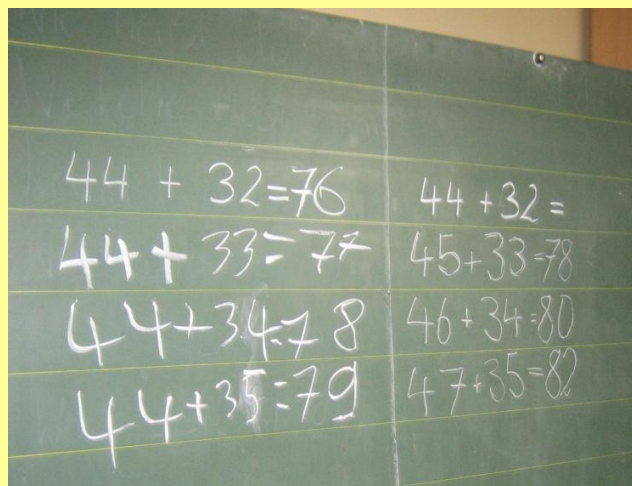 44 + 32=76
44+ 33= 77
44+34=78
44+35=79
44 +32=
45+33=78
46+34=80
47+35=82